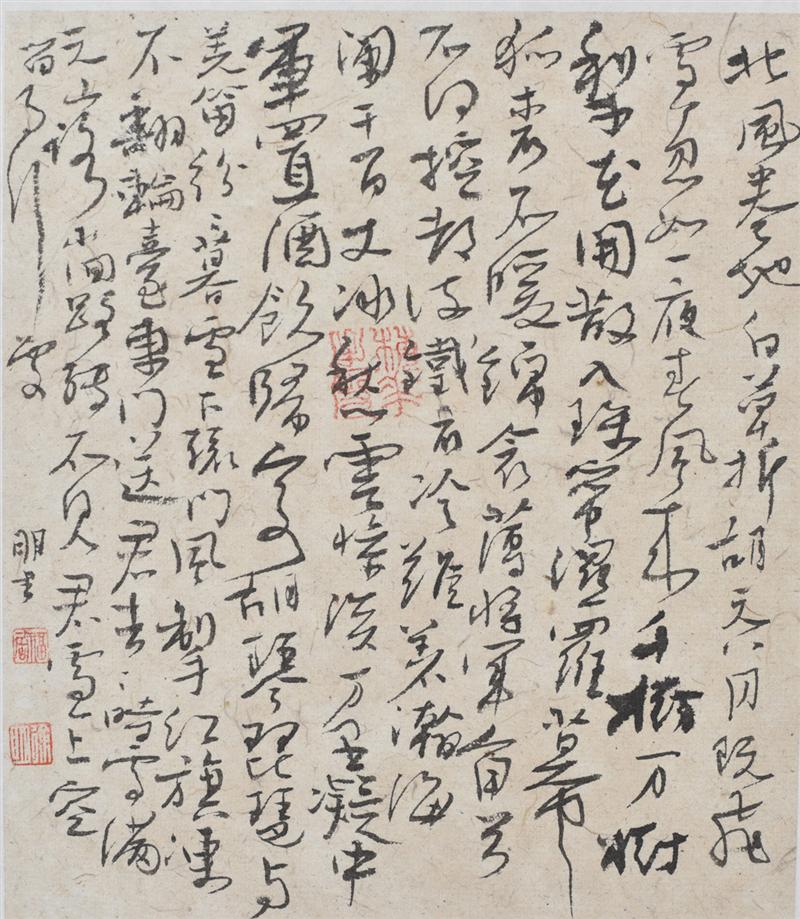 北風卷地白草折胡天八月既飛
雪忽如一夜春風來千樹万樹
梨花開散入珠簾濕羅幕
狐裘不暖錦衾薄將軍角弓
不得控都護鐵衣冷難著瀚海
闌干百丈冰愁雲慘淡万里凝中
軍置酒飲歸客胡琴琵琶与
羌笛紛〻暮雪下轅門風掣紅旗凍
不翻輪臺東門送君去〻時雪滿
天山路山迴路轉不見君雪上空
留馬行處
明書